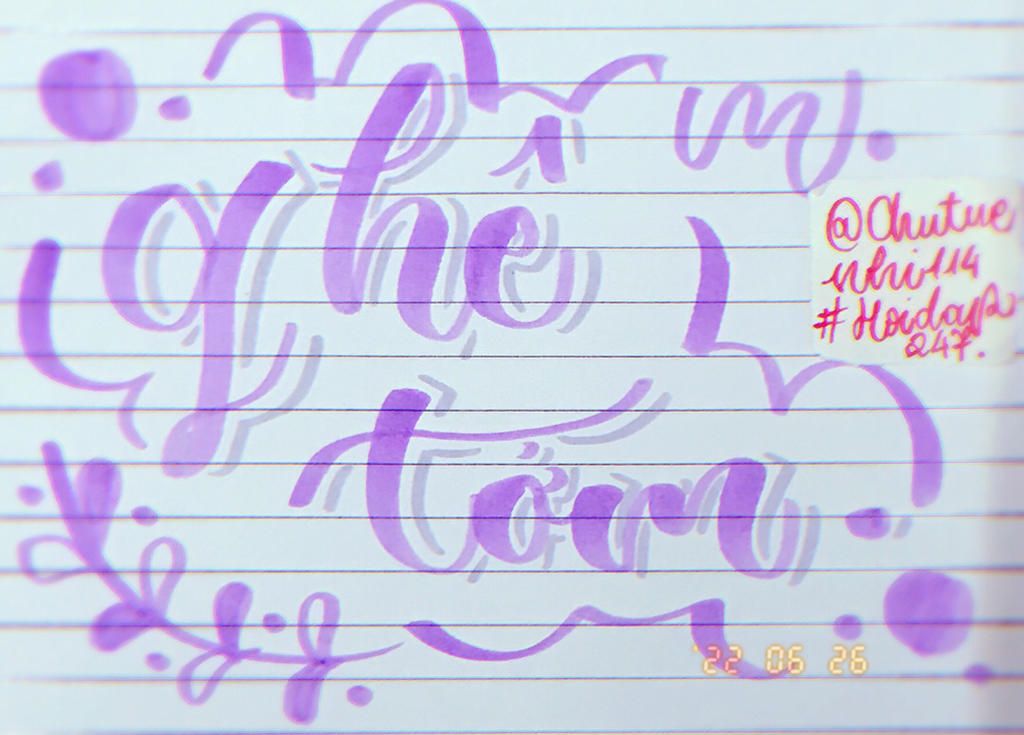 ghê
tởm
@Chutue
nhi114
#Hoidap
247.
'22 06 26